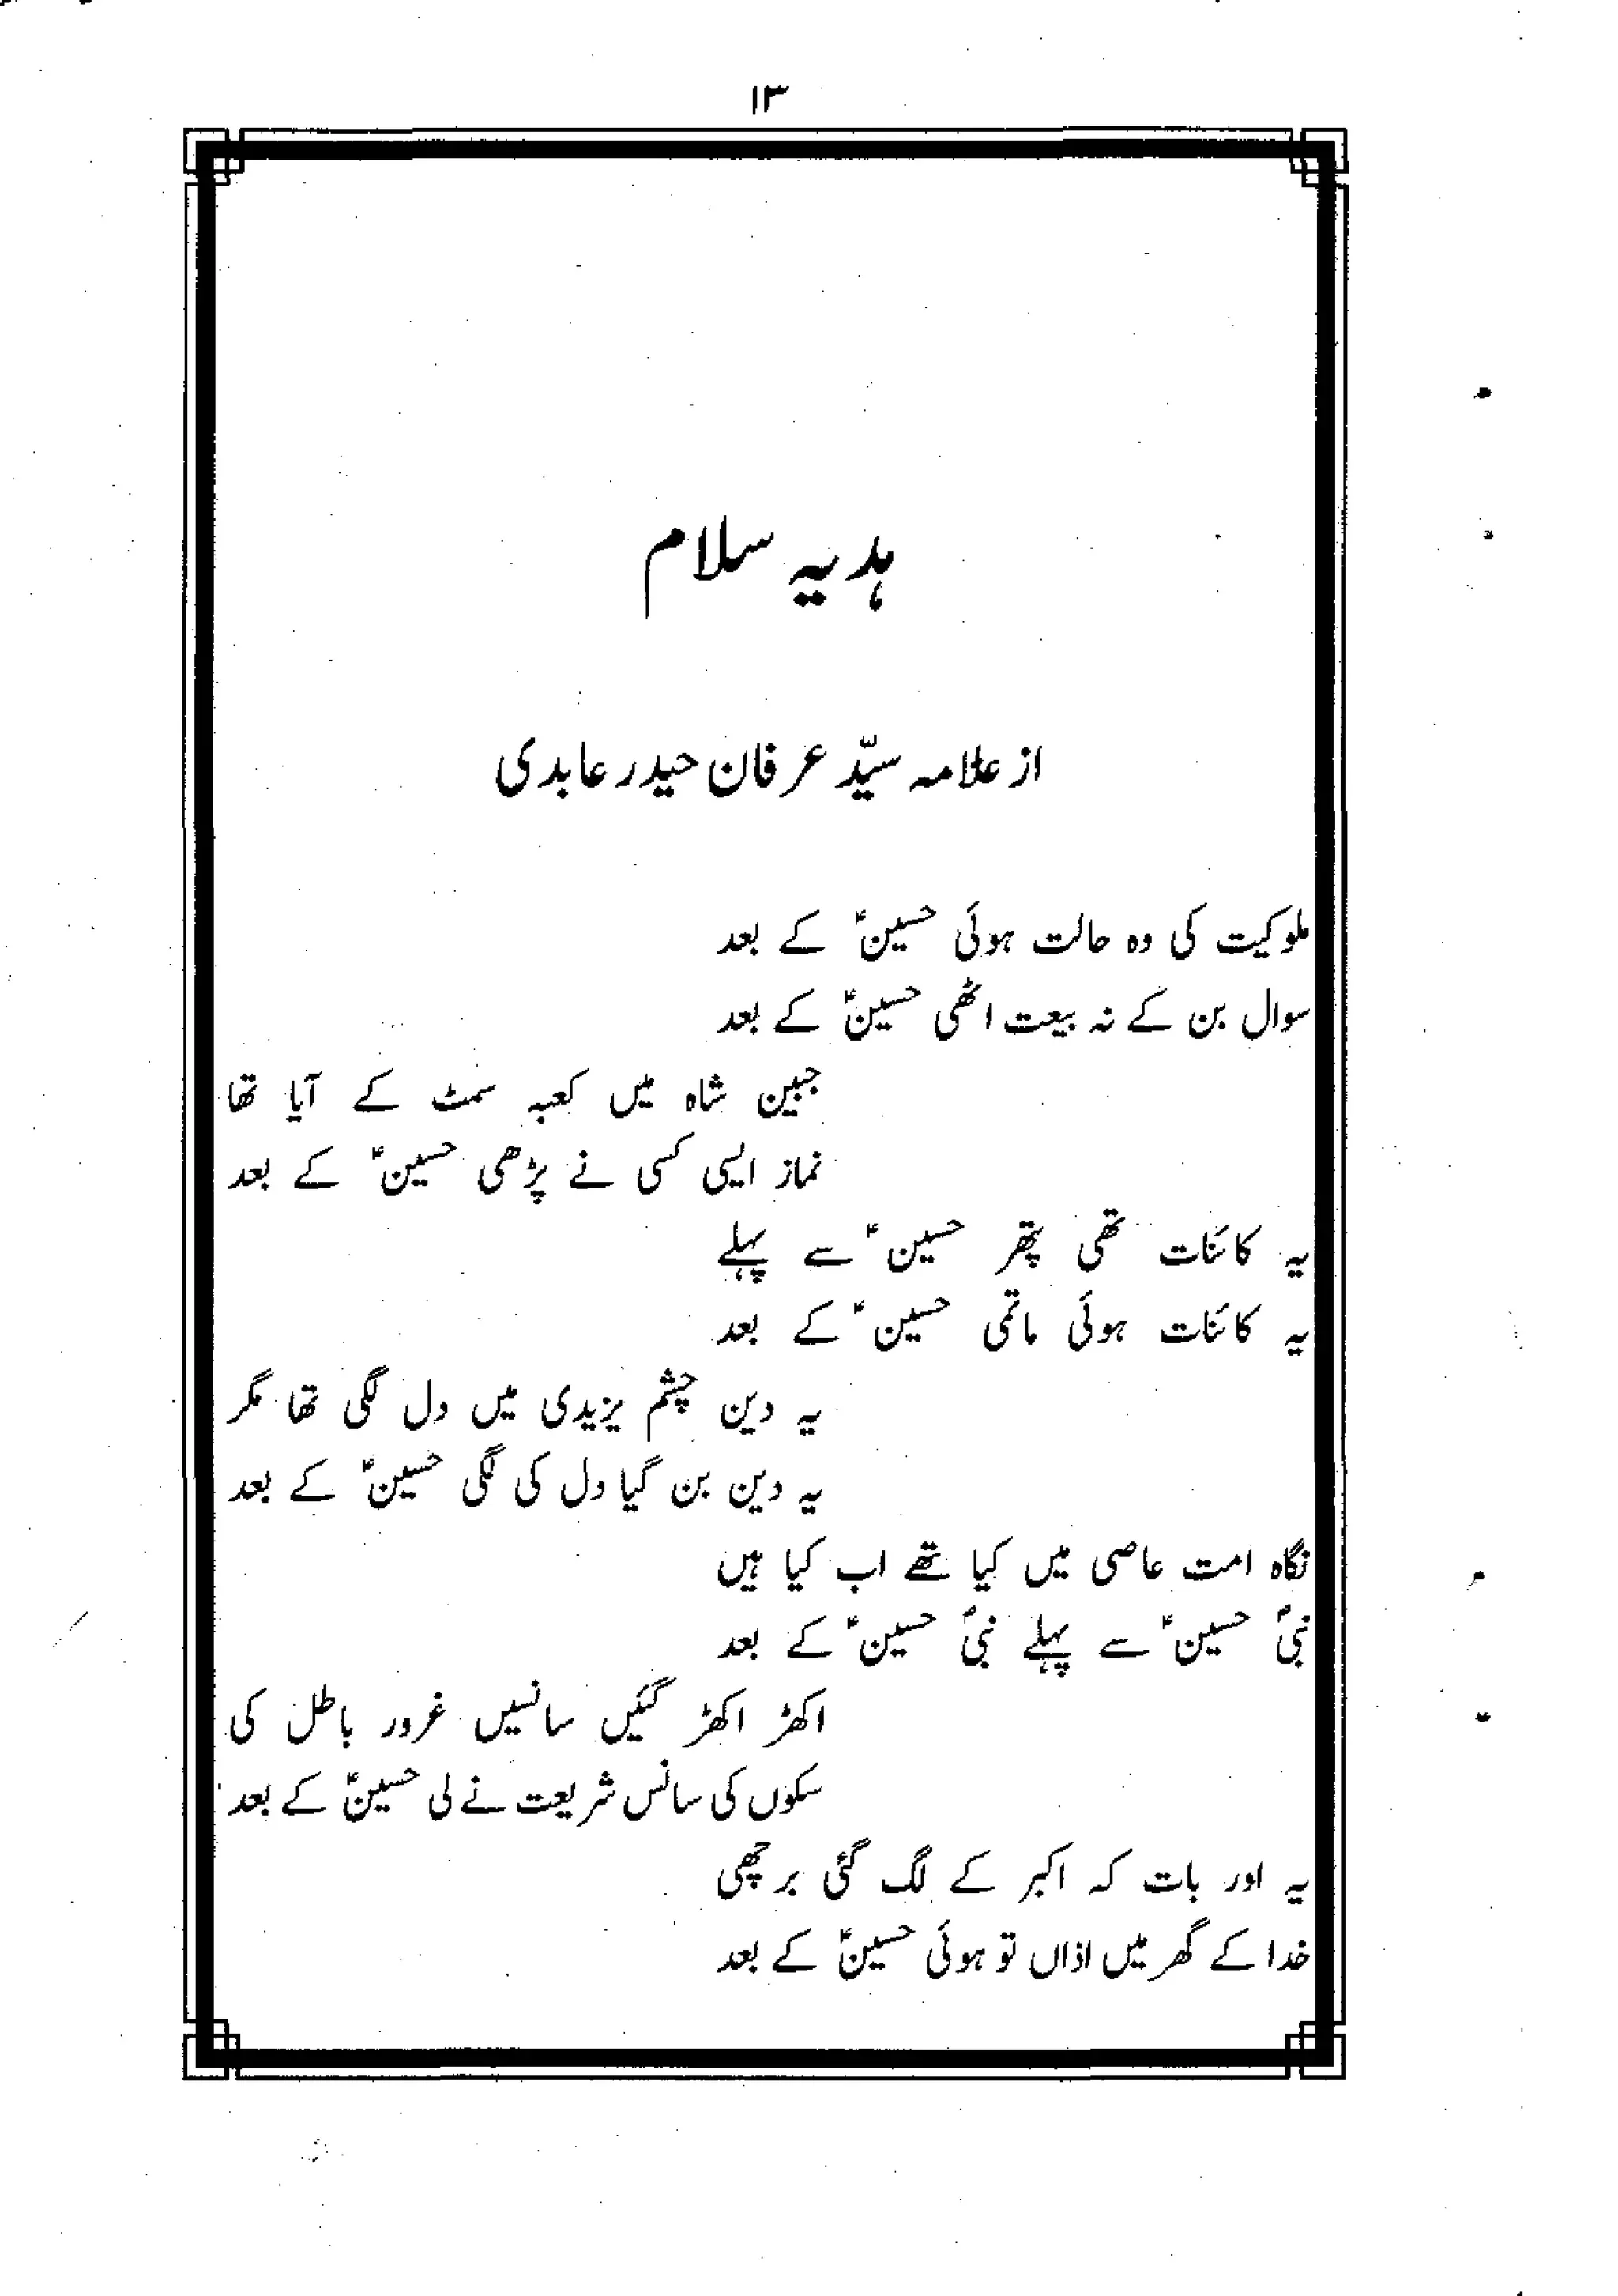 ۱۳
ہدیہ سلام
از علامہ سیّد عرفان حیدر عابدی
ملوکیت کی وہ حالت ہوئی حسینؑ کے بعد
سوال بن کے نہ بیعت اٹھی حسینؑ کے بعد
جبین شاہ میں کعبہ سمٹ کے آیا تھا
نماز ایسی کسی نے پڑھی حسینؑ کے بعد
یہ کائنات تھی پتھر حسینؑ سے پہلے
یہ کائنات ہوئی ماتمی حسینؑ کے بعد
یہ دین چشم یزیدی میں دل لگی تھا مگر
یہ دین بن گیا دل کی لگی حسینؑ کے بعد
نگاہ امت عاصی میں کیا تھے اب کیا ہیں
نبیؐ حسینؑ سے پہلے نبیؐ حسینؑ کے بعد
اکھڑ اکھڑ گئیں سانسیں غرور باطل کی
سکوں کی سانس شریعت نے لی حسینؑ کے بعد
یہ اور بات کہ اکبر کے لگ گئی برچھی
خدا کے گھر میں اذاں تو ہوئی حسینؑ کے بعد